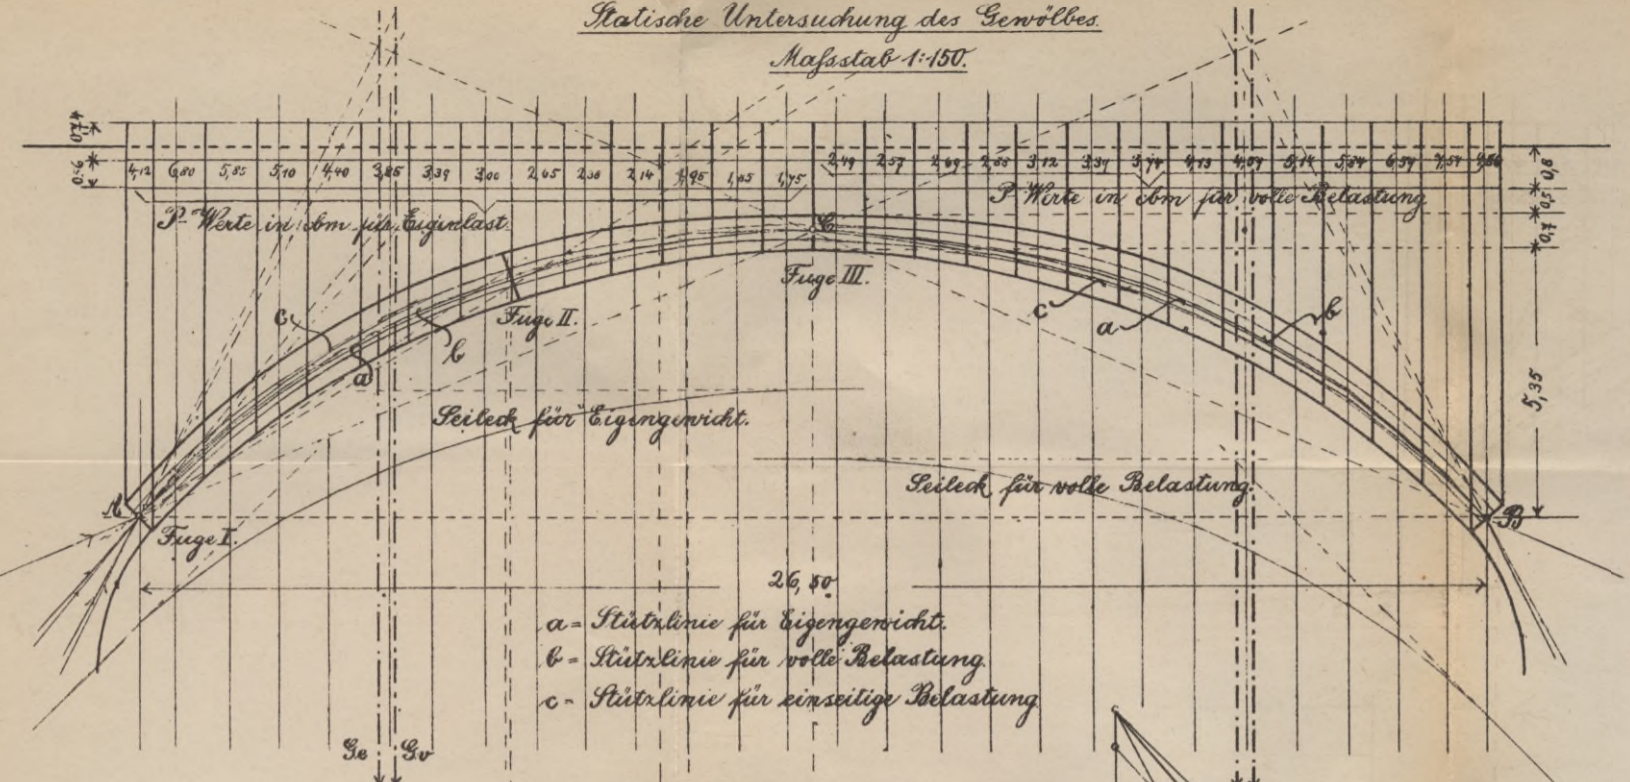 Statische Untersuchung des Gewölbes.
Maßstab 1:150.
4,12 6,80 5,85 5,10 4,40 3,85 3,39 3,00 2,65 2,38 2,14 1,95 1,85 1,75
2,49 2,57 2,69 2,85 3,12 3,39 3,74 4,13 4,59 5,14 5,84 6,59 7,54
0,8
0,5
0,7
5,35
P-Werte in cbm für Eigenlast.
P-Werte in cbm für volle Belastung
C
Fuge III.
Fuge II.
c
a
b
c
a
b
Seileck für Eigengewicht.
Seileck für volle Belastung.
A
B
Fuge I.
26,
a = Stützlinie für Eigengewicht.
b = Stützlinie für volle Belastung.
c = Stützlinie für einseitige Belastung
Ge Gv
c